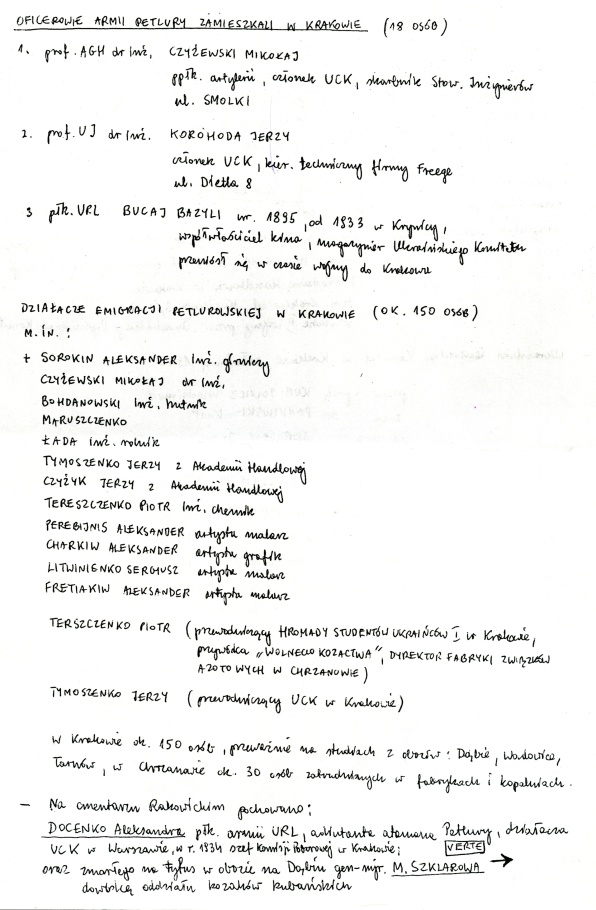 OFICEROWIE ARMII PETLURY ZAMIESZKALI W KRAKOWIE (18 OSÓB)
1. prof. AGH dr inż. CZYŻEWSKI MIKOŁAJ
ppłk. artylerii, członek UCK, skarbnik Stow. Inżynierów
ul. SMOLKI
2. prof. UJ dr inż. KOROHODA JERZY
członek UCK, kier. techniczny firmy Freege
ul. Dietla 8
3 płk. URL BUCAJ BAZYLI ur. 1895, od 1933 w Krynicy,
współwłaściciel kina, magazynier Ukraińskiego Komitetu
przeniósł się w czasie wojny do Krakowa
DZIAŁACZE EMIGRACJI PETLUROWSKIEJ W KRAKOWIE (OK. 150 OSÓB)
M.IN.:
+ SOROKIN ALEKSANDER inż. górniczy
CZYŻEWSKI MIKOŁAJ dr inż.
BOHDANOWSKI inż. hutnik
MARUSZCZENKO
ŁADA inż. rolnik
TYMOSZENKO JERZY z Akademii Handlowej
CZYŻYK JERZY z Akademii Handlowej
TERESZCZENKO PIOTR inż. chemik
PEREBIJNIS ALEKSANDER artysta malarz
CHARKIW ALEKSANDER artysta grafik
LITWINIENKO SERGIUSZ artysta malarz
FRETIAKIW ALEKSANDER artysta malarz
TERSZCZENKO PIOTR (przewodniczący HROMADY STUDENTÓW UKRAIŃCÓW I w Krakowie,
przywódca „WOLNEGO KOZACTWA", DYREKTOR FABRYKI ZWIĄZKÓW
AZOTOWYCH W CHRZANOWIE)
TYMOSZENKO JERZY (przewodniczący UCK w Krakowie)
W Krakowie ok. 150 osób, przeważnie na studiach z obozów: Dąbie, Wadowice,
Tarnów, w Chrzanowie ok. 30 osób zatrudnionych w fabrykach i kopalniach.
— Na cmentarzu Rakowickim pochowano:
DOCENKO Aleksandra płk. armii URL, adiutanta atamana Petlury, działacza
UCK w Warszawie, w r. 1934 szef Komisji Poborowej w Krakowie; VERTE
oraz zmarłego na tyfus w obozie na Dąbiu gen-mjr. M. SZKLAROWA →
dowódcę oddziału kozaków kubańskich